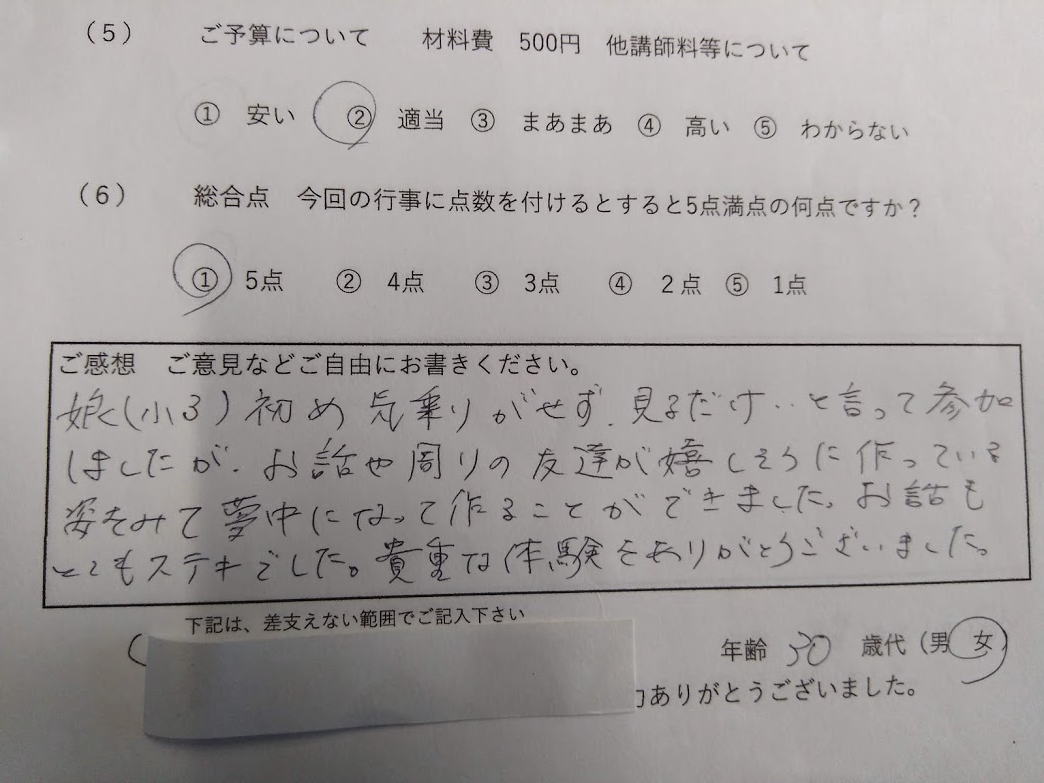 （5） ご予算について 材料費 500円 他講師料等について
① 安い ② 適当 ③ まあまあ ④ 高い ⑤ わからない
（6） 総合点 今回の行事に点数を付けるとすると5点満点の何点ですか？
① 5点 ② 4点 ③ 3点 ④ 2点 ⑤ 1点
ご感想 ご意見などご自由にお書きください。
娘(小3)初め気乗りがせず、見るだけ‥と言って参加
しましたが、お話や周りの友達が嬉しそうに作っている
姿をみて夢中になって作ることができました。お話も
とてもステキでした。貴重な体験をありがとうございました。
下記は、差支えない範囲でご記入下さい
年齢 30 歳代（男 女）
ありがとうございました。